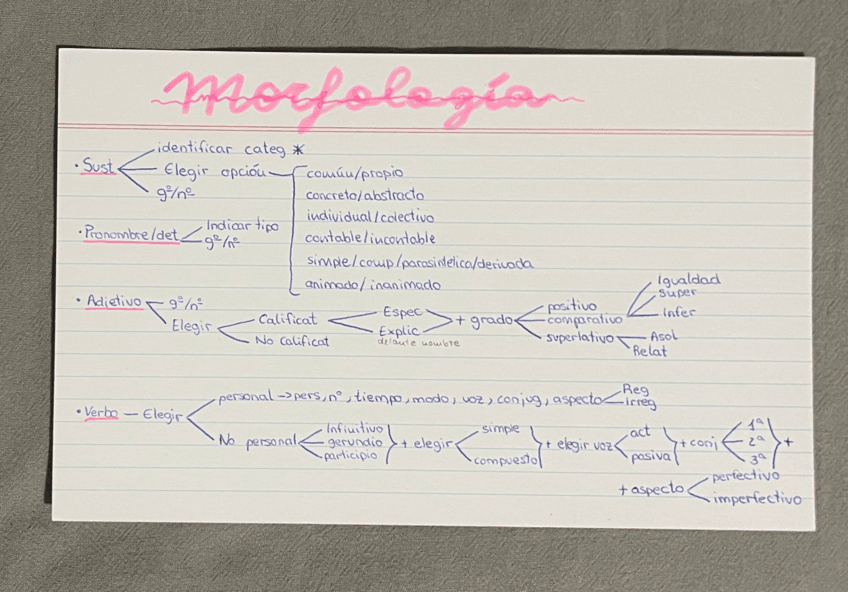 Morfología
· Sust identificar categ *
Elegir opción común/propio
gº/nº concreto/abstracto
individual/colectivo
· Pronombre/det Indicar tipo
gº/nº contable/incontable
simple/comp/parasintetica/derivada
animado/inanimado
· Adjetivo gº/nº
Elegir Calificat Espec + grado positivo
No calificat Explic comparativo Igualdad
delante nombre super
Infer
superlativo Asol
Relat
· Verbo — Elegir personal -> pers, nº, tiempo, modo, voz, conjug, aspecto Reg
irreg
No personal Infinitivo + elegir simple + elegir voz act + conj 1ª +
gerundio compuesto pasiva 2ª
participio 3ª
+ aspecto perfectivo
imperfectivo